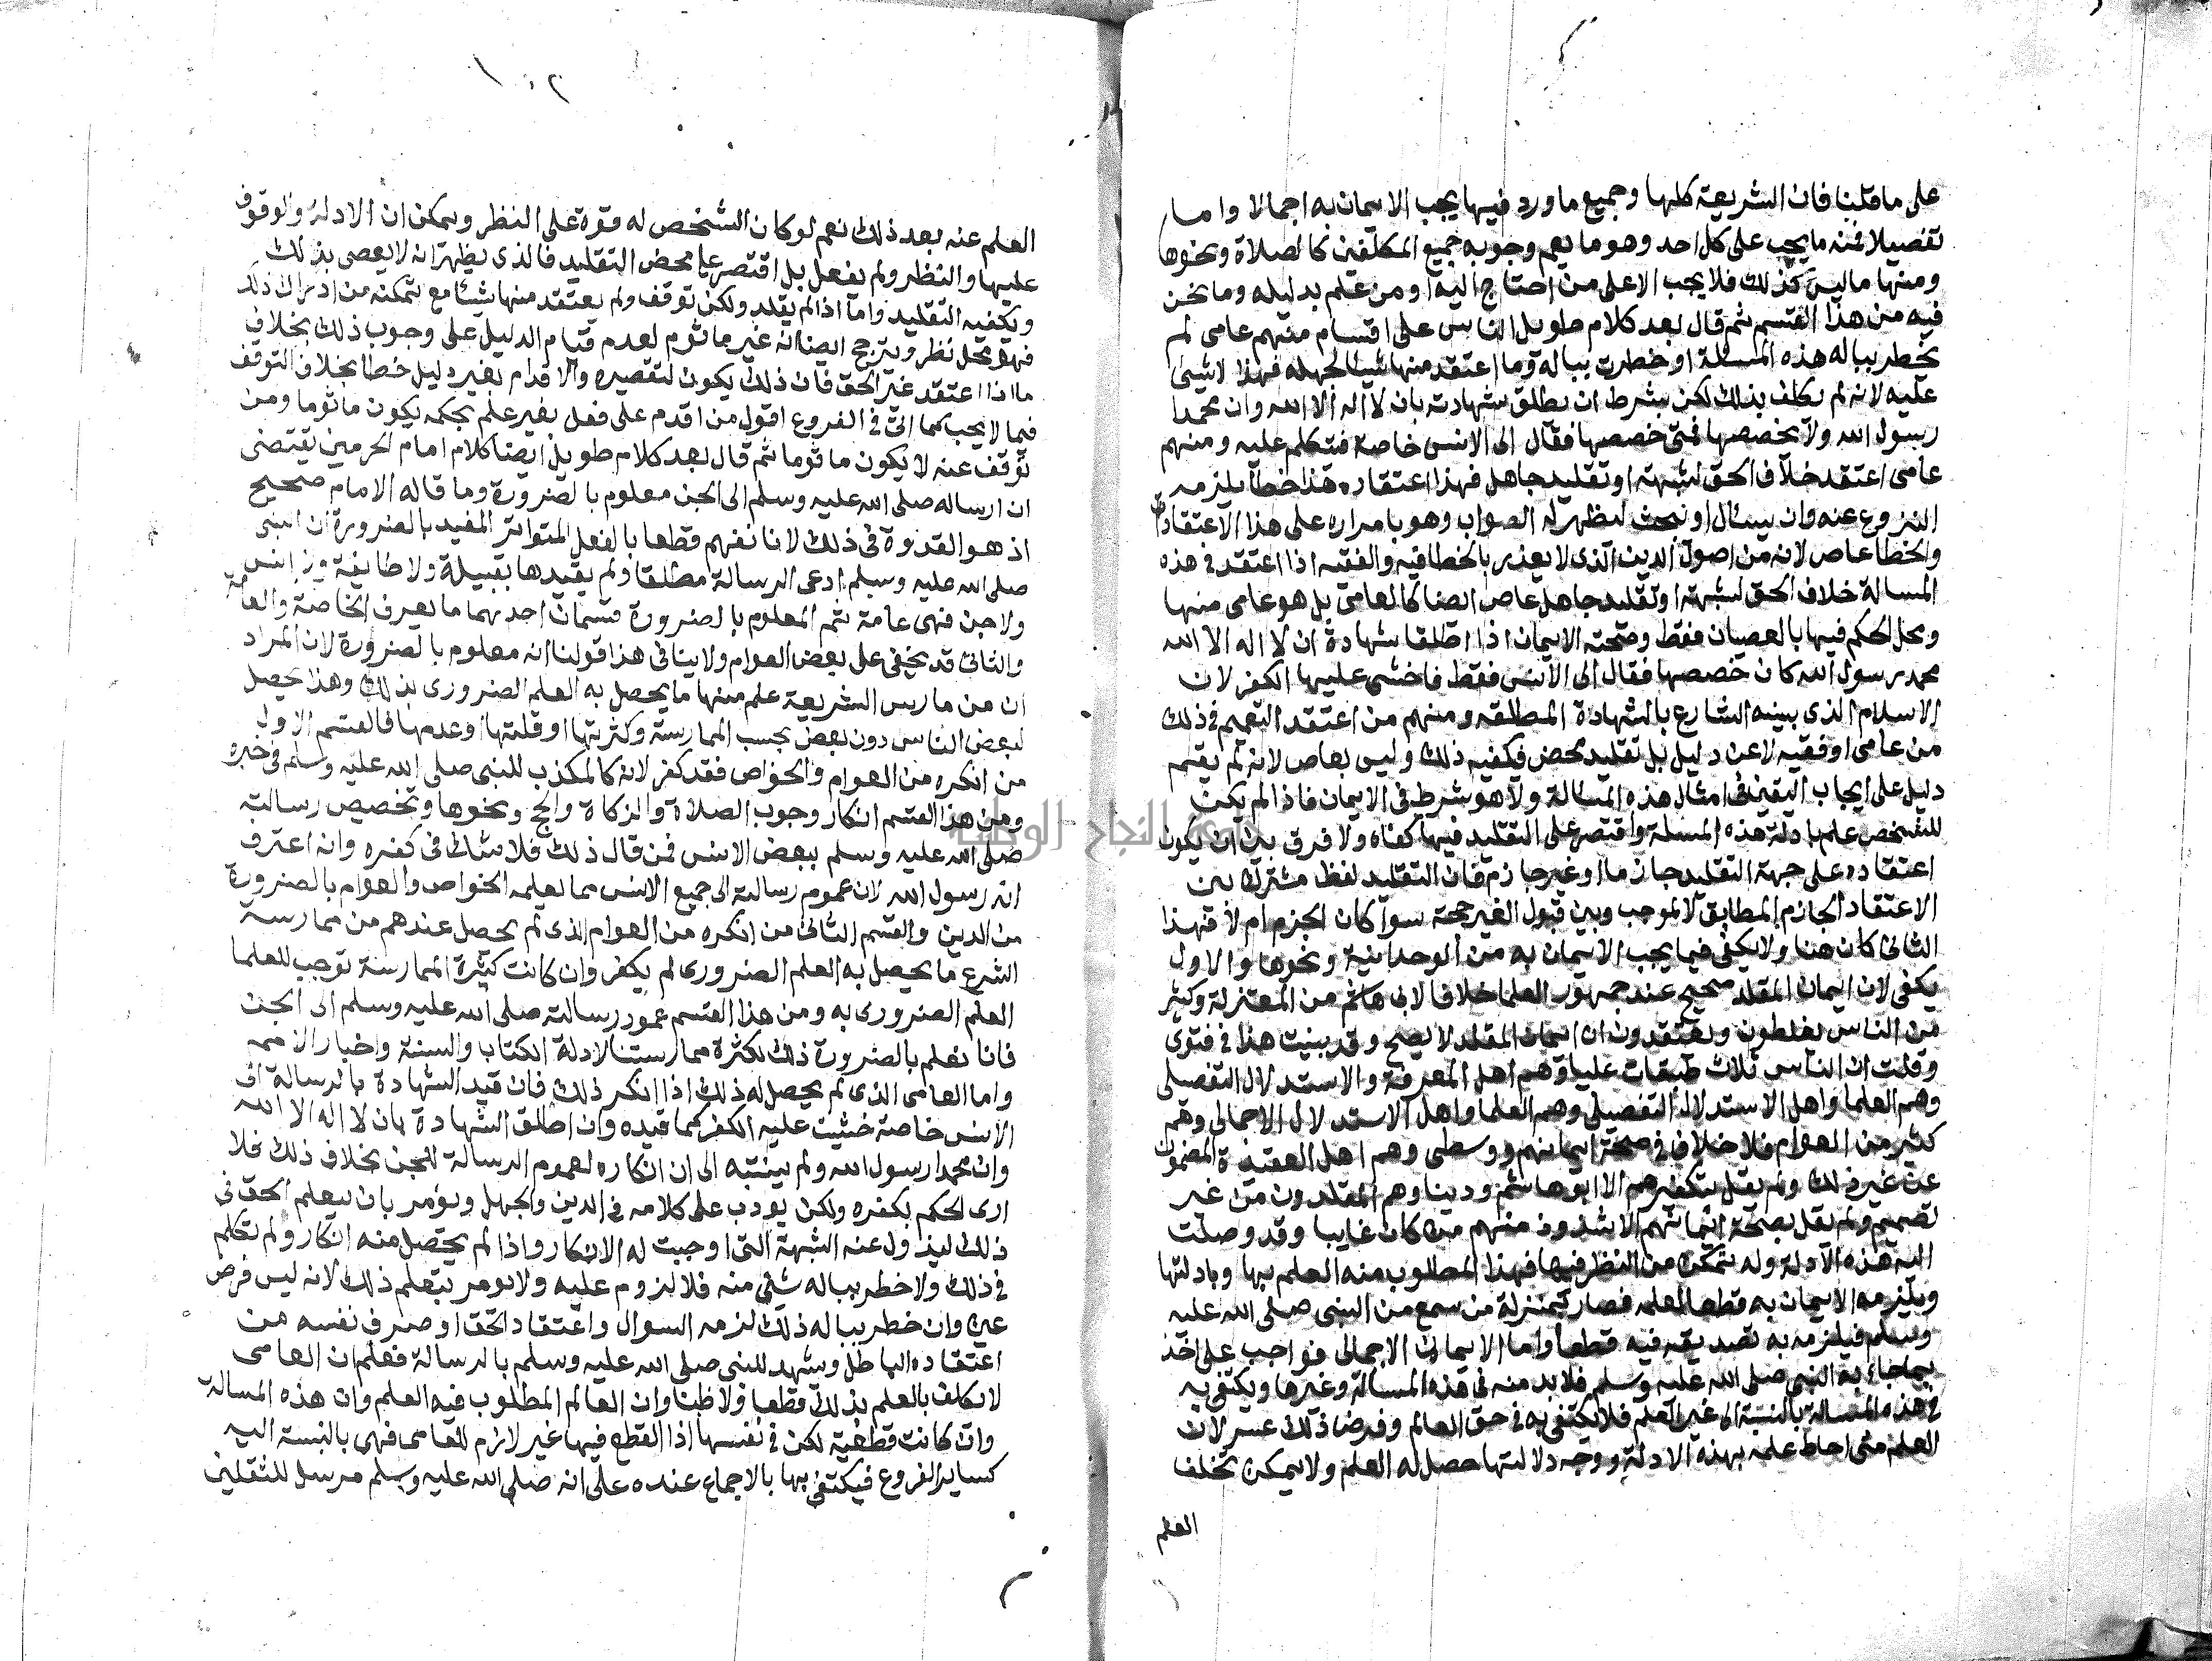 على ما قلنا فان الشريعة كلها وجميع ما ورد فيها يجب الايمان به اجمالا واما
تفصيلا فمنه ما يجب على كل احد وهو ما يعم وجوبه جميع المكلفين كالصلاة ونحوها
ومنها ما ليس كذلك فلا يجب الا على من احتاج اليه او من علم بدليله وما نحن
فيه من هذا القسم ثم قال بعد كلام طويل الناس على اقسام منهم عامى لم
يخطر بباله هذه المسئلة او خطرت بباله وما اعتقد منها شيئا لجهله فهذا لا شيئ
عليه لانه لم يكلف بذلك لكن بشرط ان يطلق شهادته بان لا اله الا الله وان محمدا
رسول الله ولا يخصصها فمتى خصصها فقال الى الانس خاصة فتكلم عليه ومنهم
عامى اعتقد خلاف الحق لشبهة او تقليد جاهل فهذا اعتقاده هذا خطأ يلزمه
النزوع عنه وان يسئال او يبحث ليظهر له الصواب وهو بامراره على هذا الاعتقاد
والخطا عاص لانه من اصول الدين الذى لا يعذر بالخطا فيه والفقيه اذا اعتقد فى هذه
المسالة خلاف الحق لشبهة او تقليد جاهل عاص ايضا كالعامى بل هو عامى منها
ومحل الحكم فيها بالعصيان فقط وصحة الايمان اذا اطلقا شهادة ان لا اله الا الله
محمد رسول الله كان خصصها فقال الى الانس فقط فاخشى عليها الكفر لان
الاسلام الذى بينه الشارع بالشهادة المطلقه ومنهم من اعتقد التعميم فى ذلك
من عامى او فقيه لا عن دليل بل تقليد محض فيكفيه ذلك وليس بعاص لانه لم يقم
دليل على ايجاب اليقين فى امثال هذه المسالة ولا هو شرط فى الايمان فاذا لم يكن
للشخص علم بادلة هذه المسلة واقتصر على التقليد فيها كفاه ولا فرق بين ان يكون
اعتقاده على جهة التقليد جازما او غير جازم فان التقليد لفظ مشترك بين
الاعتقاد الجازم المطابق لا لموجب وبين قبول الغير حجة سوا كان الجزم ام لا فهذا
الثانى كان هنا ولا يكفى فيما يجب الايمان به من الوحدانية ونحوها والاول
يكفى لان ايمان المقلد صحيح عند جمهور العلما خلافا لابى هاشم من المعتزلة وكثير
من الناس يغلطون ويعتقدون ان ايمان المقلد لا يصح وقد بينت هذا فى فتوى
وقلت ان الناس ثلاث طبقات عليا وهم اهل المعرفة والاستدلال التفصيلى
وهم العلما واهل الاستدلال التفصيلى وهم العلما واهل الاستدلال الاجمالى وهم
كثير من العوام فلا خلاف فى صحة ايمانهم ووسطى وهم اهل العقيدة المصممون
عن غير ذلك ولم يقل بتكفيرهم الا ابو هاشم ودينا وهم المقلدون من غير
تصميم ولم يقل بصحة ايمانهم الا شذوذ منهم من كان غايبا وقد وصلت
اليه هذه الادلة وله تمكن من النظر فيها فهذا المطلوب منه العلم بها وبادلتها
ويلزمه الايمان به قطعا لعلمه فصار كمنزلة من سمع من النبى صلى الله عليه
وسلم فيلزمه به تصديقه فيه قطعا واما الايمان الاجمالى فواجب على احد
بما جاء به النبى صلى الله عليه وسلم فلا بد منه فى هذه المسالة وغيرها ويكتفى به
فى هذه المسالة بالنسبة الى غير العلم فلا يكتفى به فى حق العالم وفرضنا ذلك عسر لان
العلم متى احاط علمه بهذه الادلة ووجه دلالتها حصل له العلم ولا يمكن تخلف
العلم
العلم عنه بعد ذلك نعم لو كان الشخص له قوة على النظر ويمكن ان الادلة والوقوف
عليها والنظر ولم يفعل بل اقتصر على محض التقليد فالذى يظهر انه لا يعصى بذلك
ويكفيه التقليد واما اذا لم يقلد ولكن توقف ولم يعتقد منها شيئا مع تمكنه من ادراك ذلك
فهو محل نظر ويترجح ايضا انه غير ماثوم لعدم قيام الدليل على وجوب ذلك بخلاف
ما اذا اعتقد غير الحق فان ذلك يكون لتقصيره والاقدام بغير دليل خطا بخلاف التوقف
فيما لا يجب كما اتى فى الفروع اقول من اقدم على فعل بغير علم بحكمه يكون ماثوما ومن
توقف عنه لا يكون ماثوما ثم قال بعد كلام طويل ايضا كلام امام الحرمين يقتضى
ان ارساله صلى الله عليه وسلم الى الجن معلوم بالضرورة وما قاله الامام صحيح
اذ هو القدوة فى ذلك لانا نفهم قطعا بالفعل المتواتر المفيد بالضرورة ان النبى
صلى الله عليه وسلم ادعى الرسالة مطلقا ولم يقيدها بقبيلة ولا طايفة من انس
ولا جن فهى عامة ثم المعلوم بالضرورة قسمان احدهما ما يعرف الخاصة والعامة
والثانى قد يخفى على بعض العوام ولا ينافى هذا قولنا انه معلوم بالضرورة لان المراد
ان من مارس الشريعة علم منها ما يحصل به العلم الضرورى بذلك وهذا يحصل
لبعض الناس دون بعض بحسب الممارسة وكثرتها او قلتها او عدمها فالقسم الاول
من انكره من العوام والخواص فقد كفر لانه كالمكذب للنبى صلى الله عليه وسلم فى خبره
ومن هذا القسم انكار وجوب الصلاة والزكاة والحج ونحوها وتخصيص رسالته
صلى الله عليه وسلم ببعض الانس فمن قال ذلك فلا شك فى كفره وان اعترف
انه رسول الله لان عموم رسالته الى جميع الانس مما يعلمه الخواص والعوام بالضرورة
من الدين والقسم الثانى من انكره من العوام الذى لم يحصل عندهم من ممارسة
الشرع ما يحصل به العلم الضرورى لم يكفر وان كانت كثيرة الممارسة توجب للعلما
العلم الضرورى به ومن هذا القسم عموم رسالته صلى الله عليه وسلم الى الجن
فانا نعلم بالضرورة ذلك لكثرة ممارستنا لادلة الكتاب والسنة واخبار الامم
واما العامى الذى لم يحصل له ذلك اذا انكر ذلك فان قيد الشهادة بالرسالة الى
الانس خاصة خشيت عليه الكفر كما قيده وان اطلق الشهادة بان لا اله الا الله
وان محمدا رسول الله ولم ينتبه الى ان انكاره لعموم الرسالة للجن بخلاف ذلك فلا
ارى الحكم بكفره ولكن يودب على كلامه فى الدين والجهل ويؤمر بان يعلم الحق فى
ذلك ليزول عنه الشبهة التى اوجبت له الانكار واذا لم يحصل منه انكار ولم تكلم
فى ذلك ولا خطر بباله شئ منه فلا لزوم عليه ولا يومر بتعلم ذلك لانه ليس فرض
عين وان خطر بباله ذلك لزمه السوال واعتقاد الحق او صرف نفسه من
اعتقاده الباطل وشهد للنبى صلى الله عليه وسلم بالرسالة فعلم ان العامى
لا يكلف بالعلم بذلك قطعا ولا ظنا وان العالم المطلوب فيه العلم وان هذه المسالة
وان كانت قطعية لكن فى نفسها اذا القطع فيها غير لازم للعامى فهى بالنسبة اليه
كساير الفروع فيكتفى بها بالاجماع عنده على انه صلى الله عليه وسلم مرسل للثقلين